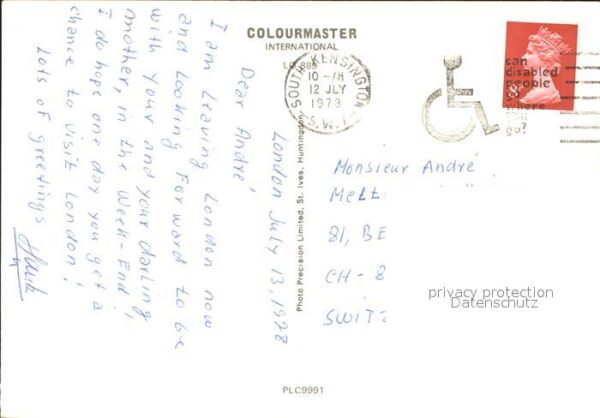 COLOURMASTER
INTERNATIONAL
SOUTH KENSINGTON
10 - AM
12 JLY
1978
S.W.
can
disabled
people
go
where
you
go?
London July 13, 1978
Dear André
I am leaving London now
and looking forward to be
with your and your darling
mother, in the Week-End!
I do hope one day you get a
chance to visit London!
Lots of greetings
Photo Precision Limited, St. Ives, Huntingdon
Monsieur André
81, BE
CH - 8
privacy protection
Datenschutz
PLC9991